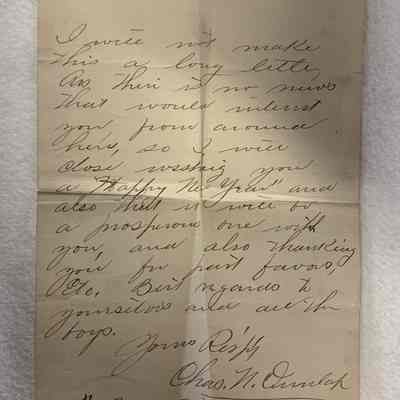 I will not make
this a long letter,
As their is no news
that would intend
you from around
here, so I will
close wishing you
a "Happy New Year" and
also that it will be
a prosperous one with
you, and also thanking
you for past favors,
Etc. Best regards to
yourselves and all the
boys.
Yours Resp'y
Chas. N. Dunlap